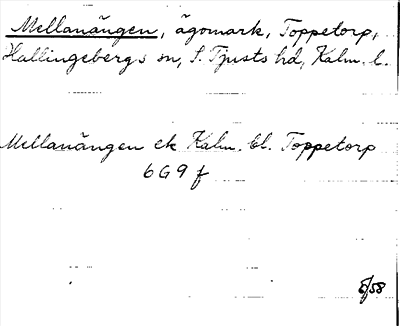 Mellanängen, ägomark, Toppetorp,
Hallingebergs sn, S. Tjusts hd, Kalm. l.
Mellanängen ek Kalm. bl. Toppetorp
6G9 f
5/58